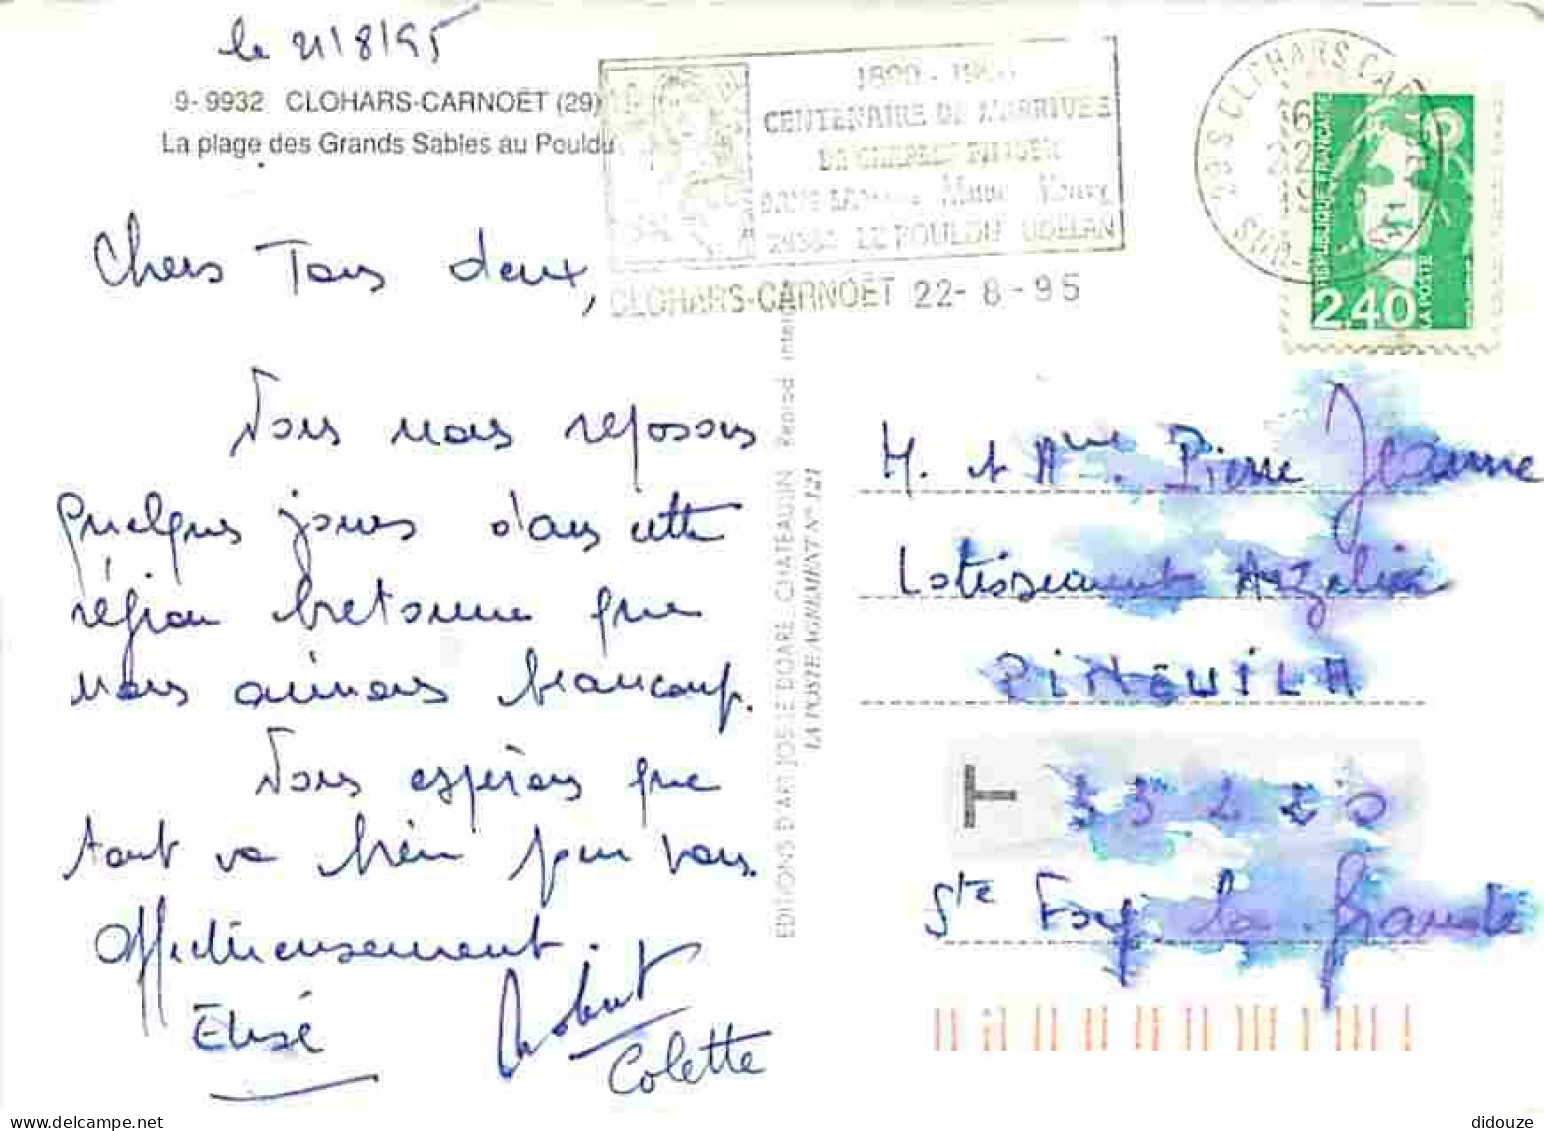 le 21/8/95
9-9932 CLOHARS-CARNOËT (29)
La plage des Grands Sables au Pouldu
Chers Tous deux,
Nous nous reposons
quelques jours dans cette
région bretonne que
nous aimons beaucoup.
Nous espérons que
tout va bien pour vous.
Affectueusement.
Elisé
Robert
Colette
EDITIONS D'ART JOS LE DOARE, CHATEAULIN Reprod. interd
LA POSTE AGREMENT N° 121
CENTENAIRE DE L'ARRIVEE
LE POULDU
CLOHARS-CARNOËT 22-8-95
CLOHARS CAR
REPUBLIQUE FRANÇAISE
2,40
LA POSTE
M. et Mme. Pierre Jeanne
Lotissement
PINEUILH
T 33220
Ste Foy la Grande
didouze